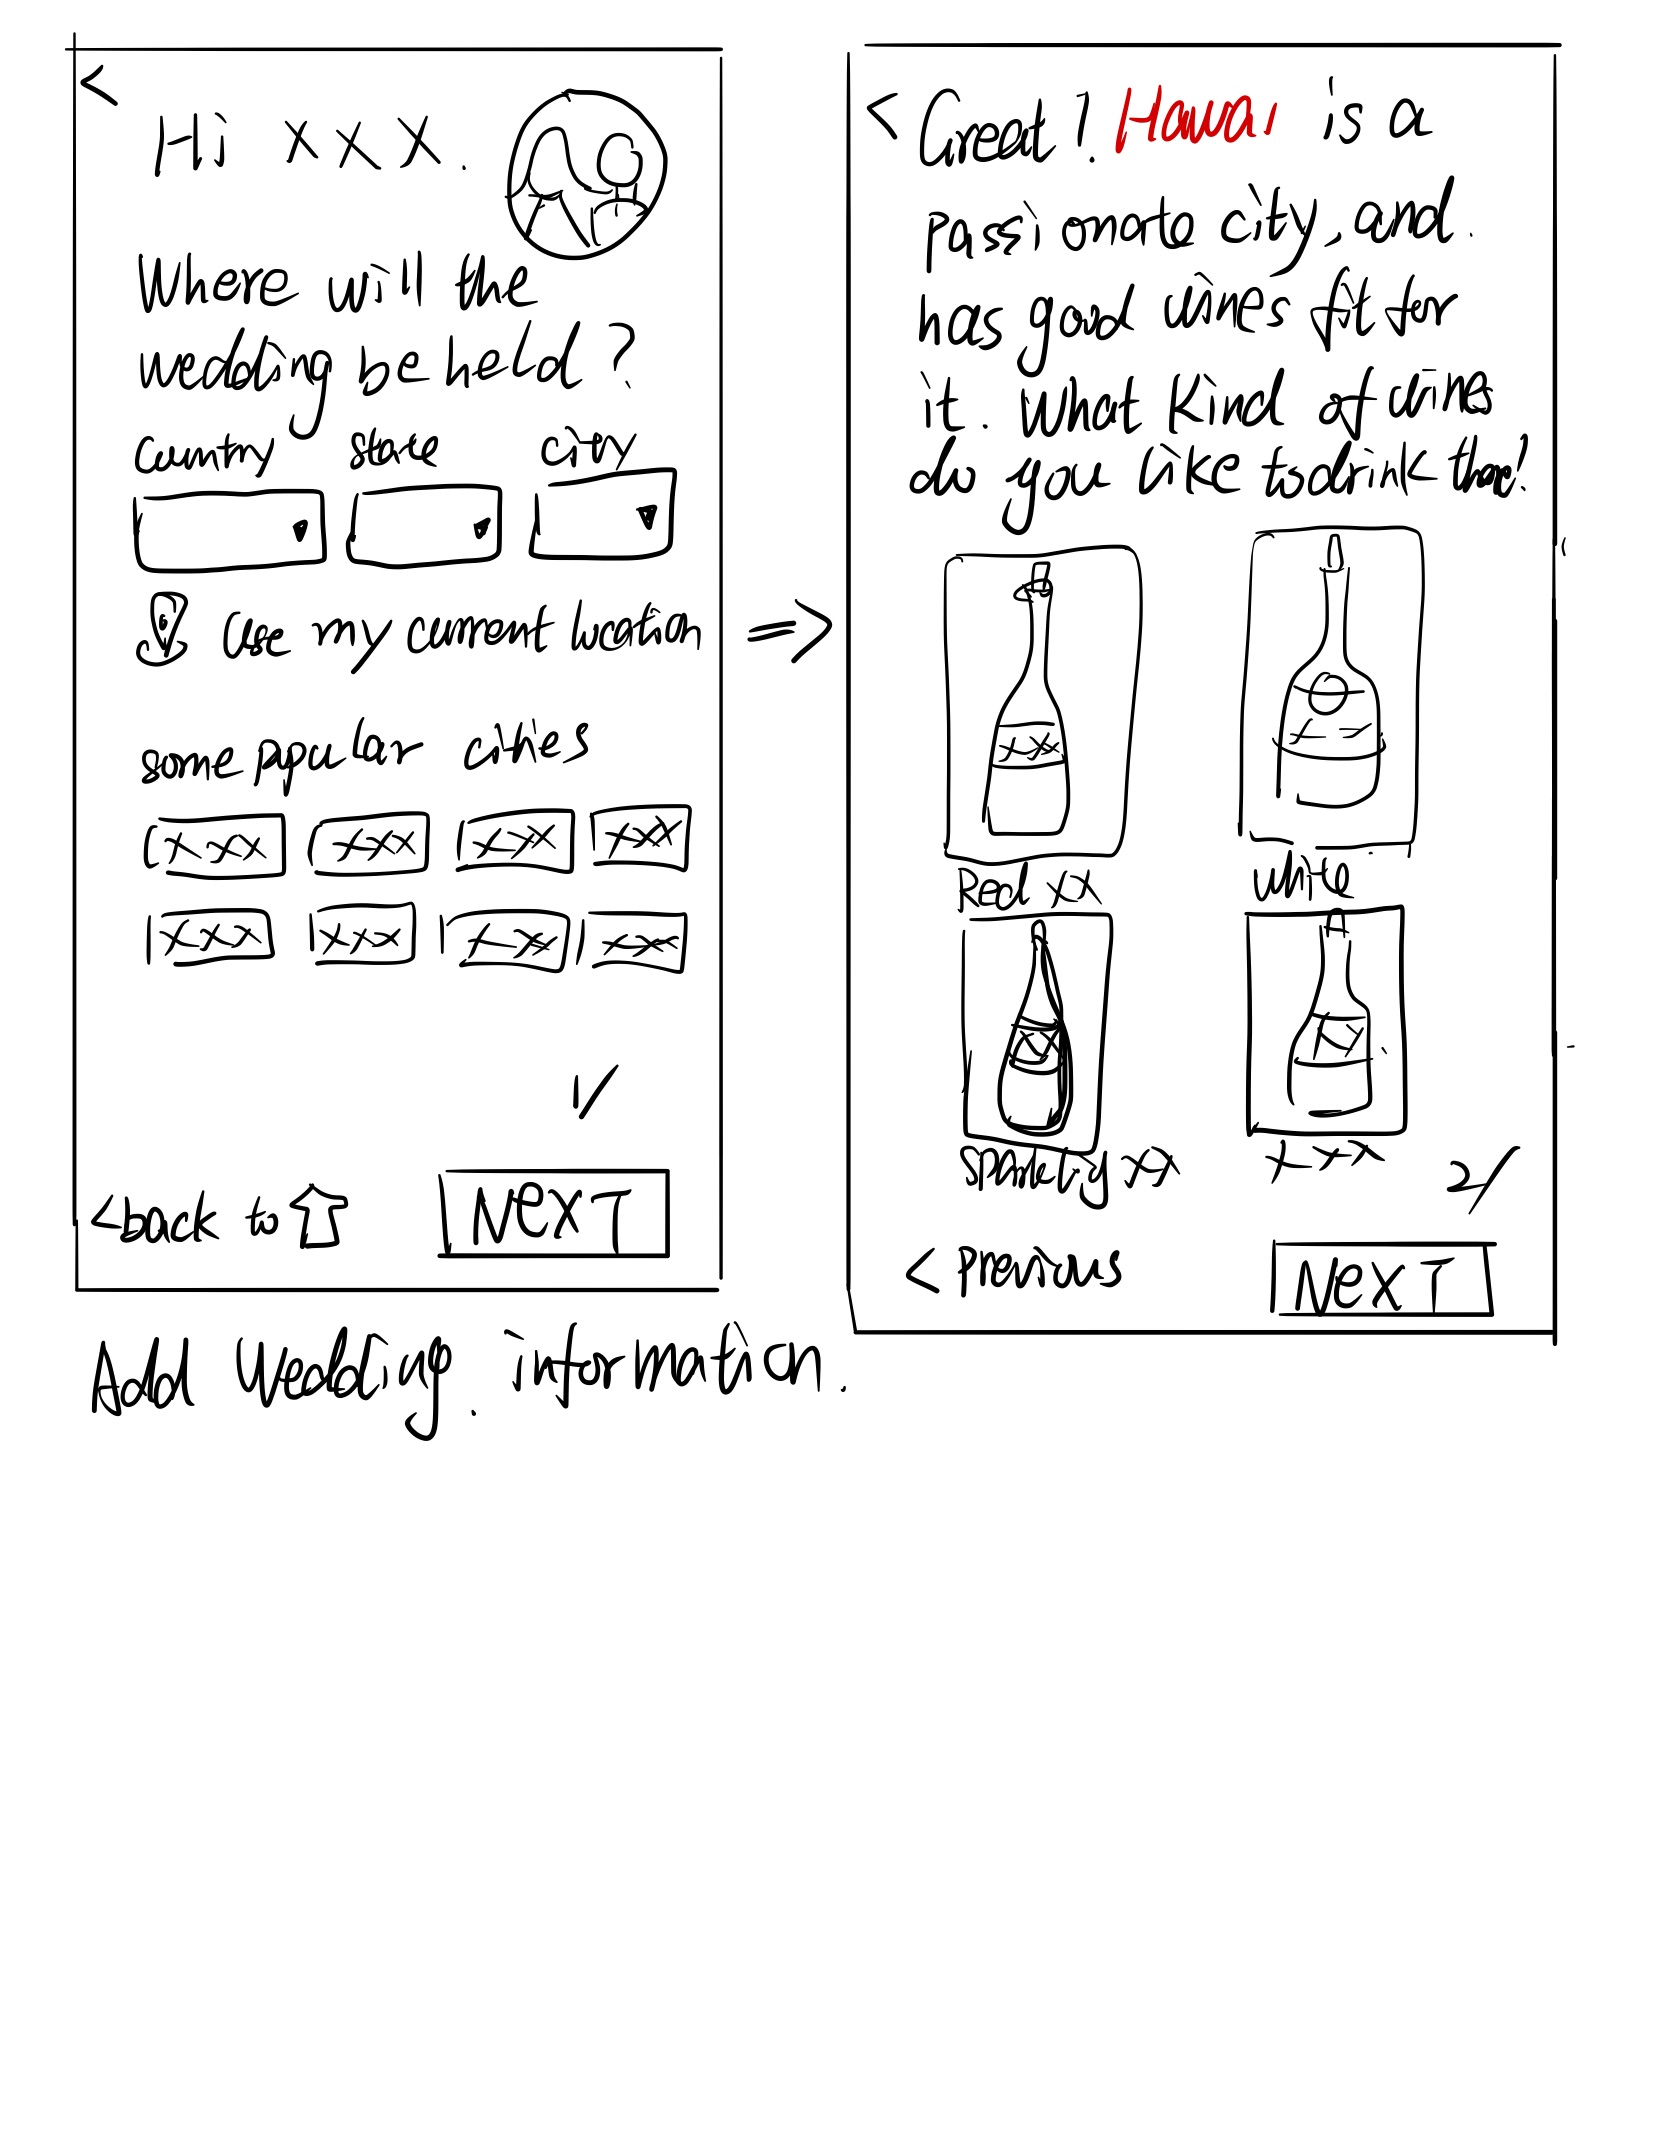 <
Hi XXX.
Where will the
wedding be held?
country state city
Use my current location
some popular cities
XXX XXX XXX XXX
XXX XXX XXX XXX
1/
<back to
NEXT
Add Wedding. information.
=>
< Great! Hawai is a
passionate city, and.
has good wines fit for
it. What kind of wines
do you like to drink there!
XXX
Red XX
White
XX
sparkly XX
XXX
2/
< Previous
NEXT